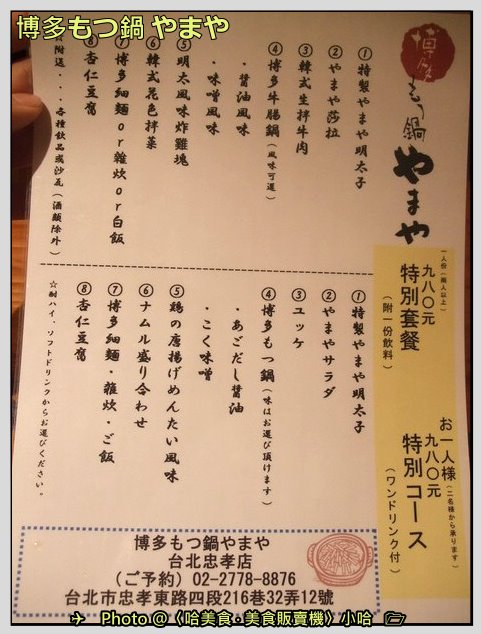 博多もつ鍋 やまや
博多
もつ鍋
やまや
一人份(兩人以上)
九八〇元
特別套餐
(附一份飲料)
お一人様(二名様から承ります)
九八〇元
特別コース
(ワンドリンク付)
①特製やまや明太子
②やまや莎拉
③韓式生拌牛肉
④博多牛腸鍋(風味可選)
・醬油風味
・味噌風味
⑤明太風味炸雞塊
⑥韓式花色拌菜
⑦博多細麵or雜炊or白飯
⑧杏仁豆腐
附送・・・各種飲品或沙瓦(酒類除外)
①特製やまや明太子
②やまやサラダ
③ユッケ
④博多もつ鍋(味はお選び頂けます)
・あごだし醤油
・こく味噌
⑤鶏の唐揚げめんたい風味
⑥ナムル盛り合わせ
⑦博多細麺・雑炊・ご飯
⑧杏仁豆腐
☆酎ハイ、ソフトドリンクからお選びください。
博多もつ鍋やまや
台北忠孝店
(ご予約) 02-2778-8876
台北市忠孝東路四段216巷32弄12號
Photo@〈哈美食‧美食販賣機〉小哈